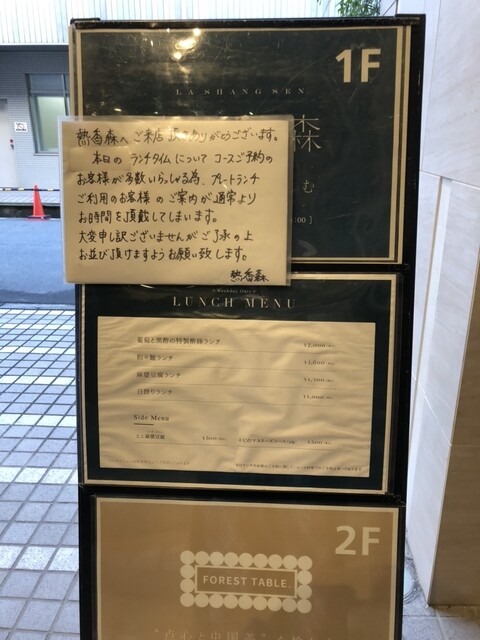 1F
LA SHANG SEN
森
む
熱香森へご来店頂きありがとうございます。
本日の ランチタイムについて コースご予約の
お客様が多数いらっしゃる為、プレートランチ
ご利用のお客様のご案内が通常より
お時間を頂戴してしまいます。
大変申し訳ございませんがご了承の上
お並び頂けますようお願い致します。
熱香森
Weekday Only
LUNCH MENU
葡萄と黒酢の特製酢豚ランチ ¥2,000
担々麺ランチ ¥1,600
麻婆豆腐ランチ ¥1,500
日替りランチ ¥1,000
Side Menu
ミニ麻婆豆腐 ¥500
2F
FOREST TABLE.